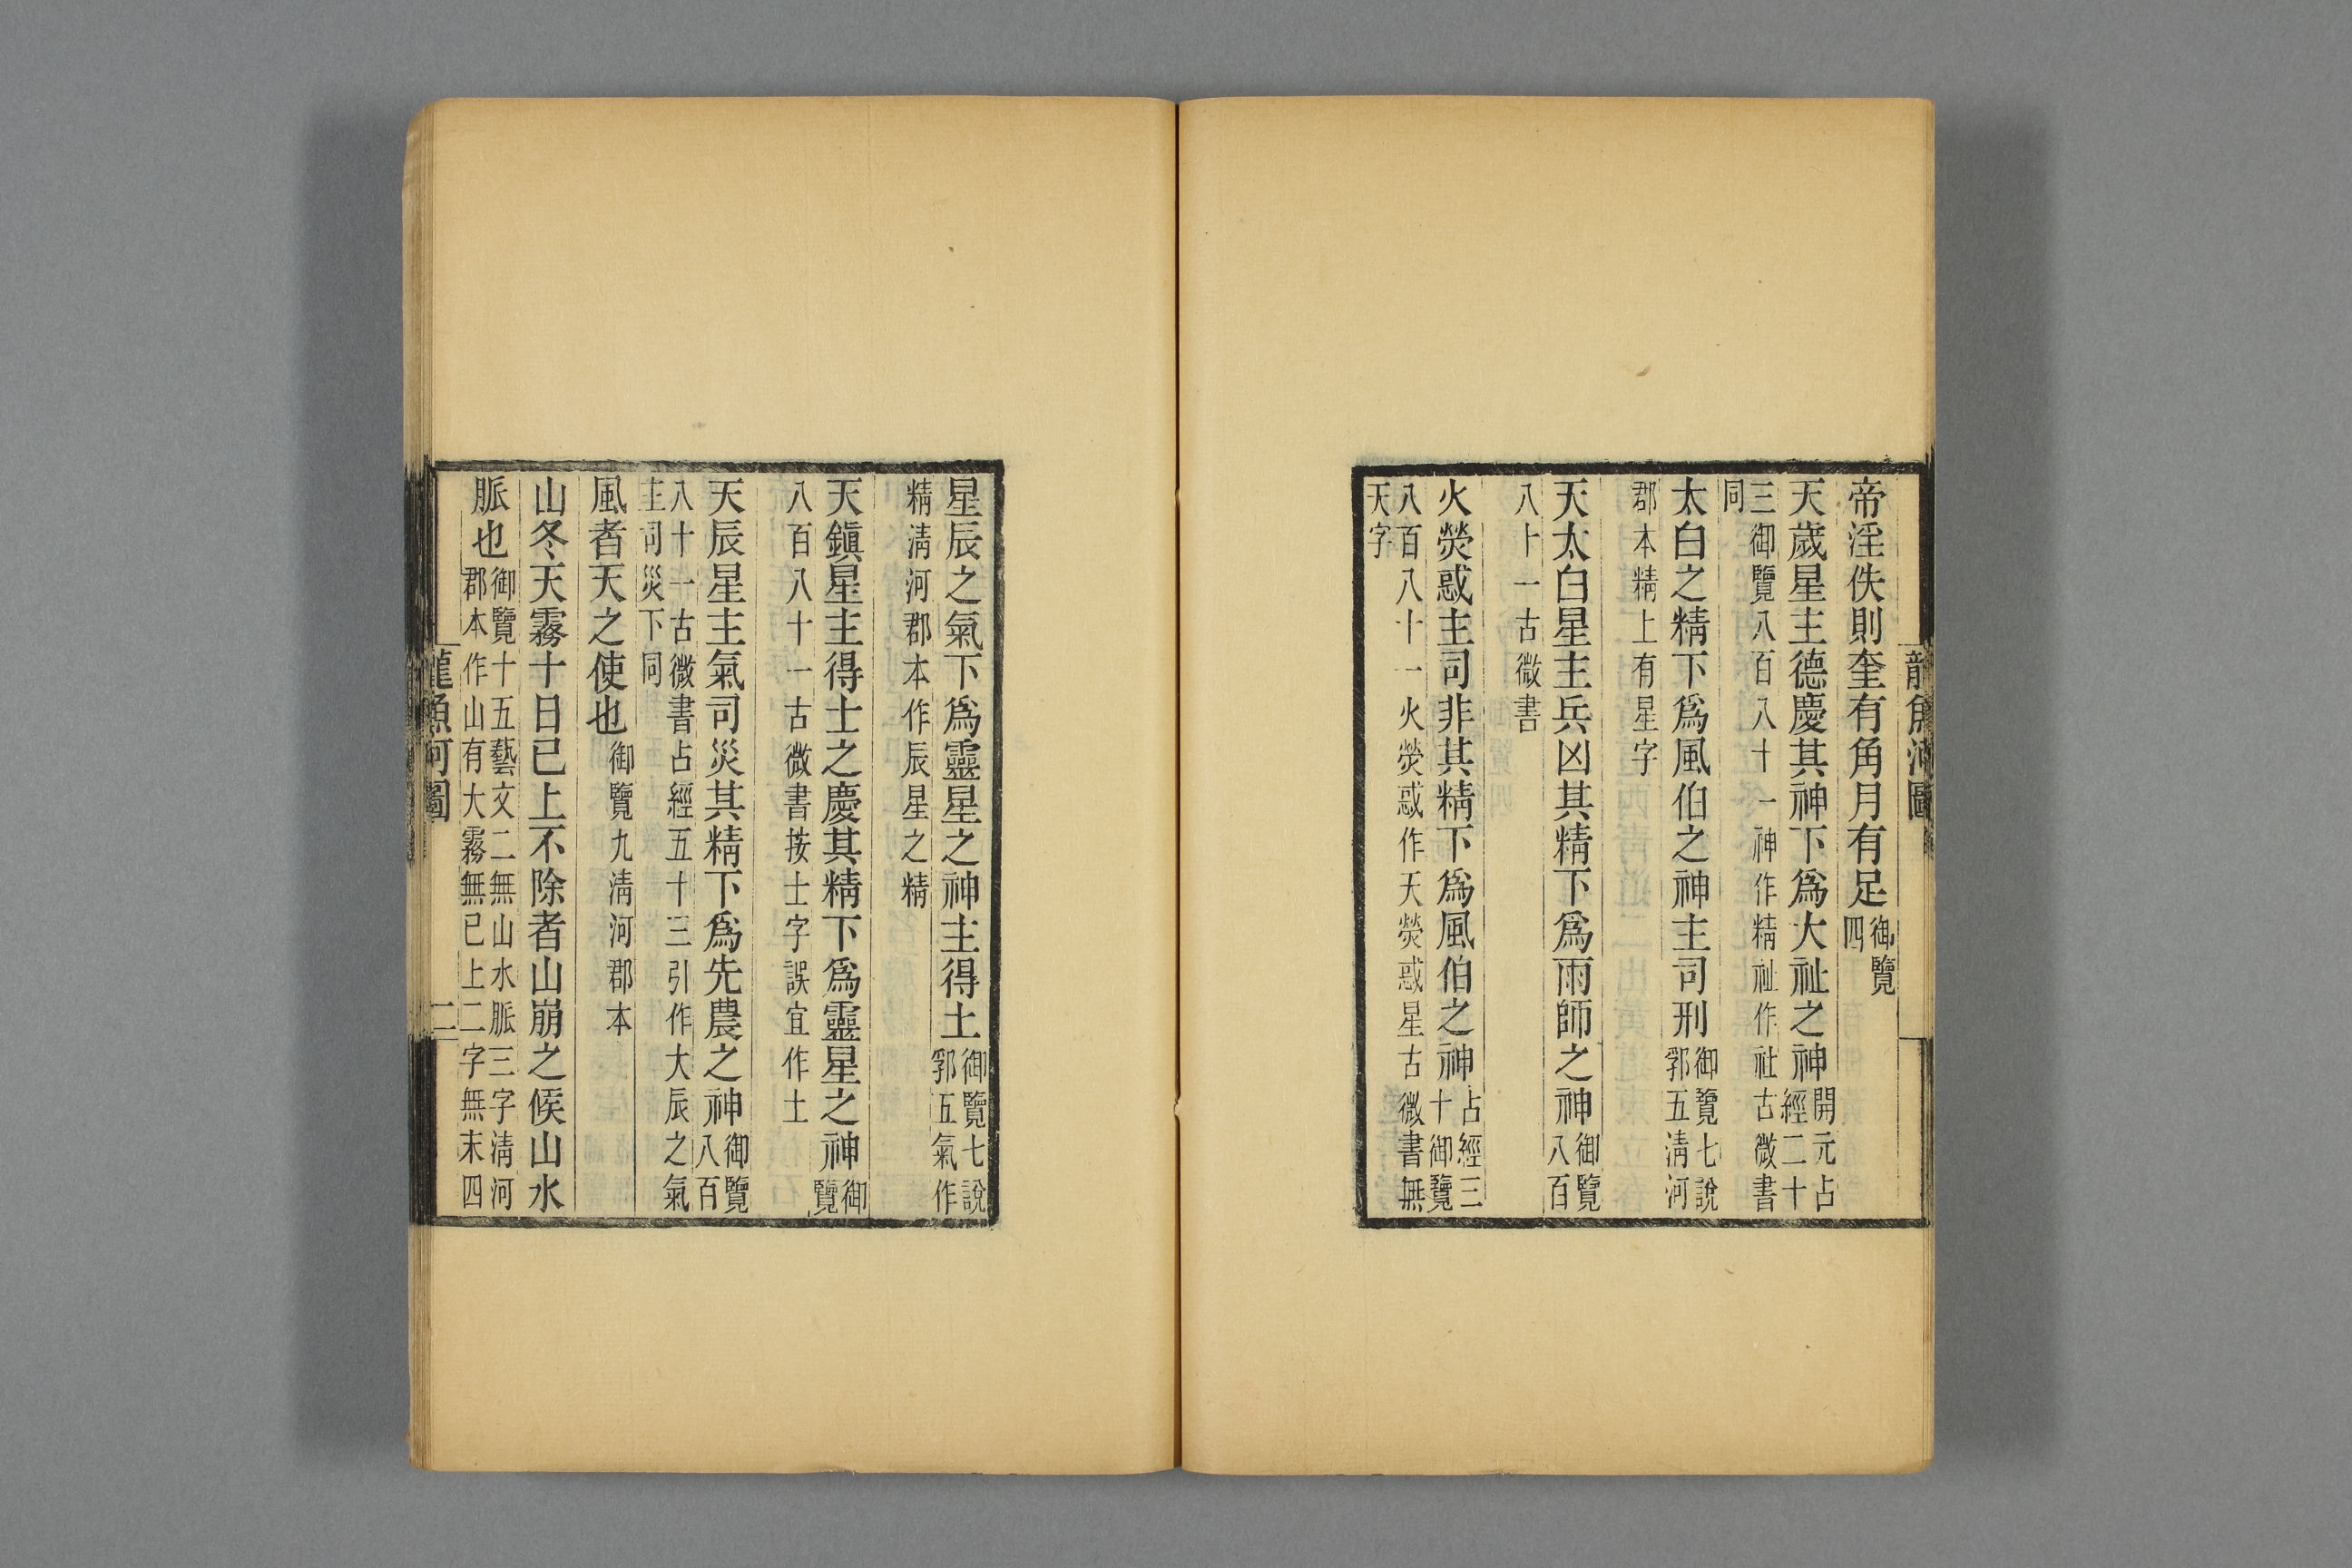 龍魚河圖
帝淫佚則奎有角月有足御覽四
天歲星主德慶其神下爲大祉之神開元占經二十
三御覽八百八十一神作精祉作社古微書同
太白之精下爲風伯之神主司刑御覽七說郛五淸河
郡本精上有星字
天太白星主兵凶其精下爲雨師之神御覽八百
八十一古微書
火熒惑主司非其精下爲風伯之神占經三十御覽
八百八十一火熒惑作天熒惑星古微書無天字
星辰之氣下爲靈星之神主得土御覽七說郛五氣作
精淸河郡本作辰星之精
天鎭星主得士之慶其精下爲靈星之神御覽
八百八十一古微書按士字誤宜作土
天辰星主氣司災其精下爲先農之神御覽八百
八十一古微書占經五十三引作大辰之氣主司災下同
風者天之使也御覽九淸河郡本
山冬天霧十日已上不除者山崩之候山水
脈也御覽十五藝文二無山水脈三字淸河郡本作山有大霧無已上二字無末四
龍魚河圖
二